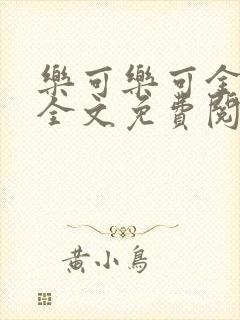 樂可樂可全
全文免費閱
黃小鳥